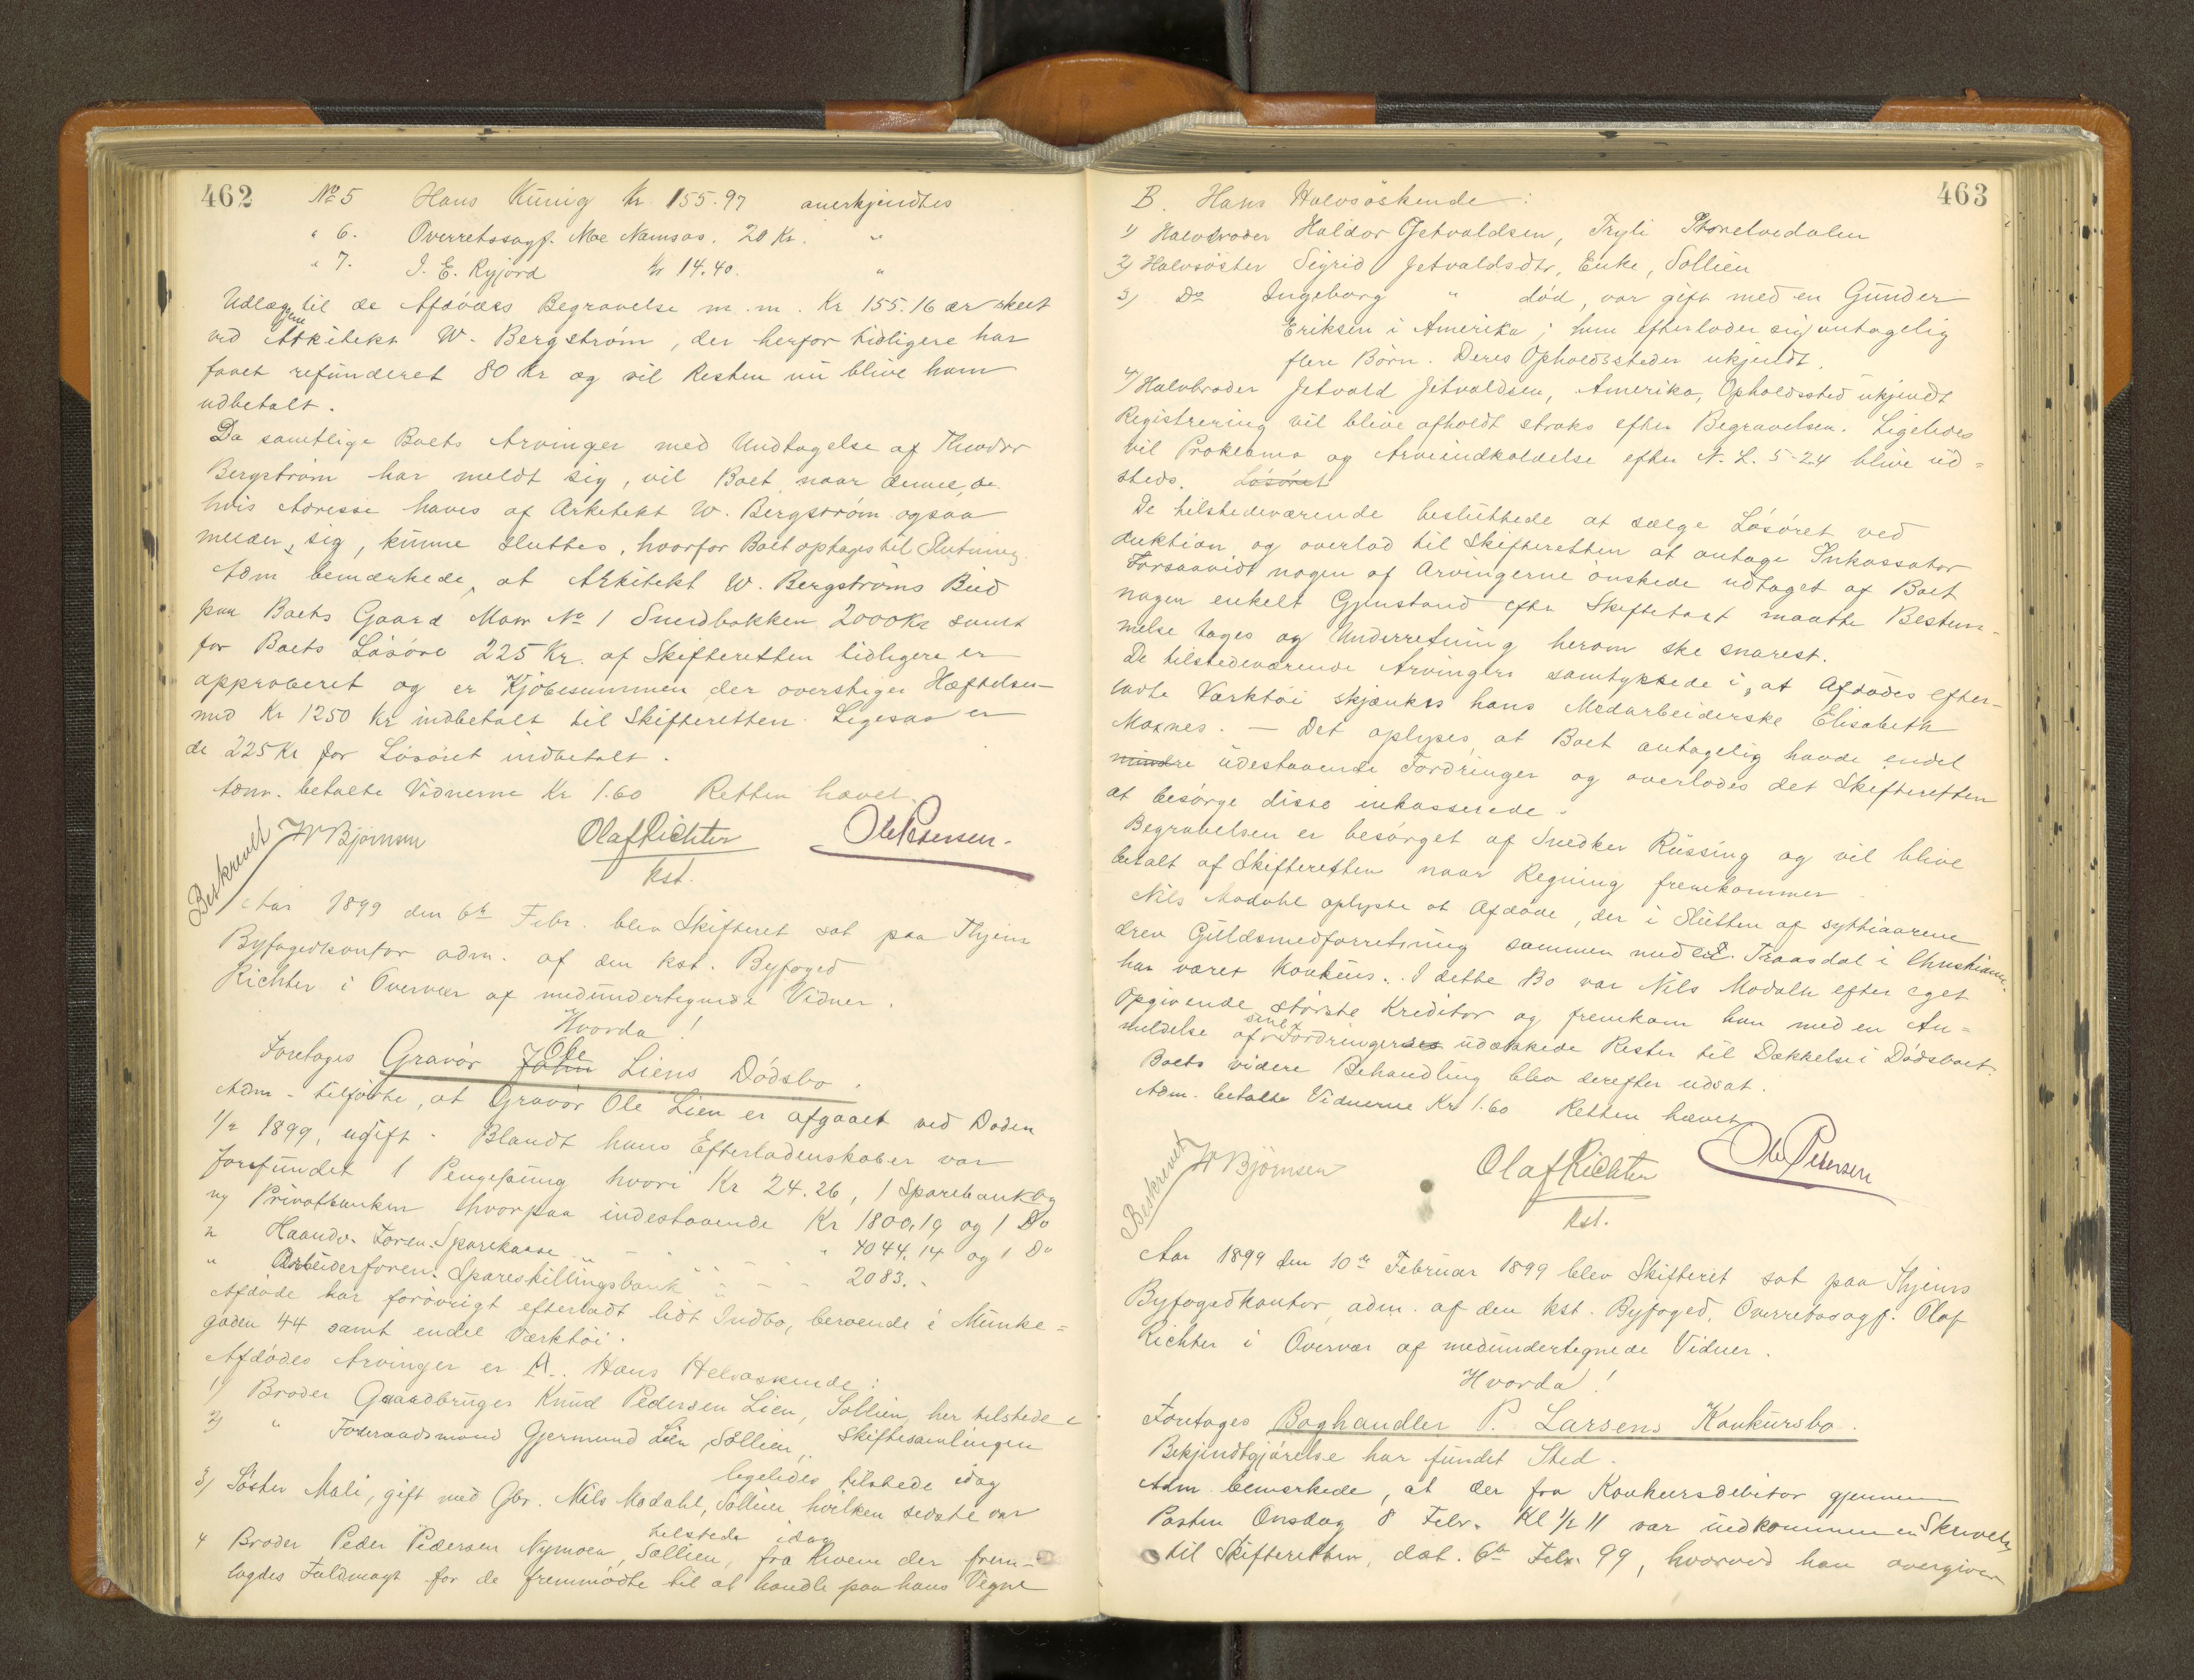 462
No 5 Hans Künig Kr. 155.97 anerkjendtes
" 6. Overretssagf. Moe Namsos. 20 Kr. "
" 7. J. E. Ryjord Kr 14.40. "
Udlæggene til de Afdödes Begravelse m.m. Kr 155.16 er skeet
ved Arkitekt W. Bergström, der herfor tidligere har
faaet refunderet 80 Kr og vil Resten nu blive ham
udbetalt.
Da samtlige Boets Arvinger med Undtagelse af Theodor
Bergström har meldt sig, vil Boet, naar denne,
hvis Adresse haves af Arkitekt W. Bergström ogsaa
melder sig, kunne sluttes, hvorfor Boet optages til Slutning.
Adm bemærkede, at Arkitekt W. Bergströms Bud
paa Boets Gaard Matr No 1 Smedbakken 2000 Kr samt
for Boets Lösöre 225 Kr. af Skifteretten tidligere er
approberet og er Kjöbesummen der overstiger Hæftelser-
med Kr 1250 Kr indbetalt til Skifteretten. Ligesaa er
de 225 Kr for Lösöret indbetalt.
Adm. betalte Vidnerne Kr 1.60 Retten hævet.
Beskrevet W Björnsen Olaf Richter Ole Petersen.
kst.
Aar 1899 den 6te Febr. blev Skifteret sat paa Thjems
Byfogedkontor adm. af den kst. Byfoged
Richter i Overvær af medundertegnede Vidner.
Hvorda!
Foretoges Gravör John Ole Liens Dödsbo.
Adm. tilförte, at Gravör Ole Lien er afgaaet ved Doden
1/2 1899, ugift. Blandt hans Efterladenskaber var
forefundet 1 Pengepung hvori Kr 24.26, 1 Sparebankbog
ny Privatbanken hvorpaa indestaaende Kr 1800,19 og 1 Do
" Haandv. Foren. Sparekasse " " 4044.14 og 1 Do
" Arbeiderforen. Spareskillingsbank " " 2083.-
Afdöde har forövrigt efterladt lidt Indbo, beroende i Munke=
gaden 44 samt endel Værktöi.
Afdödes Arvinger er A. Hans Helsöskende:
1) Broder Gaardbruger Knud Pedersen Lien, Sollien, her tilstede i
2) " Foderaadsmand Gjermund Lien, Sollien, Skiftesamlingen
ligeledes tilstede idag
3) Söster Mali, gift med Gbr. Nils Modahl, Sollien hvilken sidste var
tilstede idag
4 Broder Peder Pedersen Nymoen, Sollien, fra hvem der frem-
lagdes Fuldmagt for de fremmödte til at handle paa hans Vegne
463
B. Hans Halvsöskende:
1) Halvbroder Haldor Jetvaldsen, Tryli
2) Halvsöster Sigrid Jetvaldsdtr, Enke, Sollien
3) Do Ingeborg " död, var gift med en Gunder
Eriksen i Amerika; hun efterlader sig antagelig
flere Börn. Deres Opholdssteder ukjendt.
4) Halvbroder Jetvald Jetvaldsen, Amerika, Opholdssted ukjendt
Registrering vil blive afholdt straks efter Begravelsen. Ligeledes
vil Proklama og Arveindkaldelse efter N. L. 5-2-4 blive ud=
stedt. Lösöret
De tilstedeværende besluttede at sælge Lösöret ved
Auktion og overlod til Skifteretten at antage Inkassator
Forsaavidt nogen af Arvingerne önskede udtaget af Boet
nogen enkelt Gjenstand efter Skiftetaxt maatte Bestem-
melse tages og Underretning herom ske snarest.
De tilstedeværende Arvinger samtykkede i, at Afdödes efter-
ladte Værktöi skjænkes hans Medarbeiderske Elisabeth
Moxnes. — Det oplyses, at Boet antagelig havde endel
mindre udestaaende Fordringer og overlodes det Skifteretten
at besörge disse inkasserede.
Begravelsen er besörget af Snedker Rüssing og vil blive
betalt af Skifteretten naar Regning fremkommer
Nils Modahl oplyste at Afdöde, der i Slutten af syttiaarene
drev Guldsmedforretning sammen med E. Traasdal i Christiania,
har været Konkurs. I dette Bo var Nils Modahl efter eget
Opgivende störste Kreditor og fremkom han med en An=
meldelse af sine Fordringers udækkede Rester til Dækkelse i Dödsboet.
Boets videre Behandling blev derefter udsat.
Adm. betalte Vidnerne Kr 1.60 Retten hævet
Beskrevet W Björnsen Olaf Richter Ole Petersen
kst.
Aar 1899 den 10de Februar 1899 blev Skifteret sat paa Thjems
Byfogedkontor, adm. af den kst. Byfoged, Overretssagf. Olaf
Richter i Overvær af medundertegnede Vidner.
Hvorda!
Foretoges Boghandler P. Larsens Konkursbo.
Bekjendtgjörelse har fundet Sted.
Adm. bemærkede, at der fra Konkursdebitor gjennem
Posten Onsdag 8 Febr. Kl 1/2 11 var indkommen en Skrivelse
til Skifteretten, dat. 6te Febr. 99, hvorved han overgiver